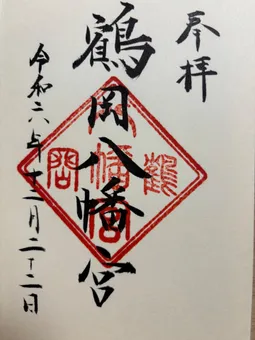 奉拝
鶴岡八幡宮
令和六年十二月二十二日
鶴岡八幡宮